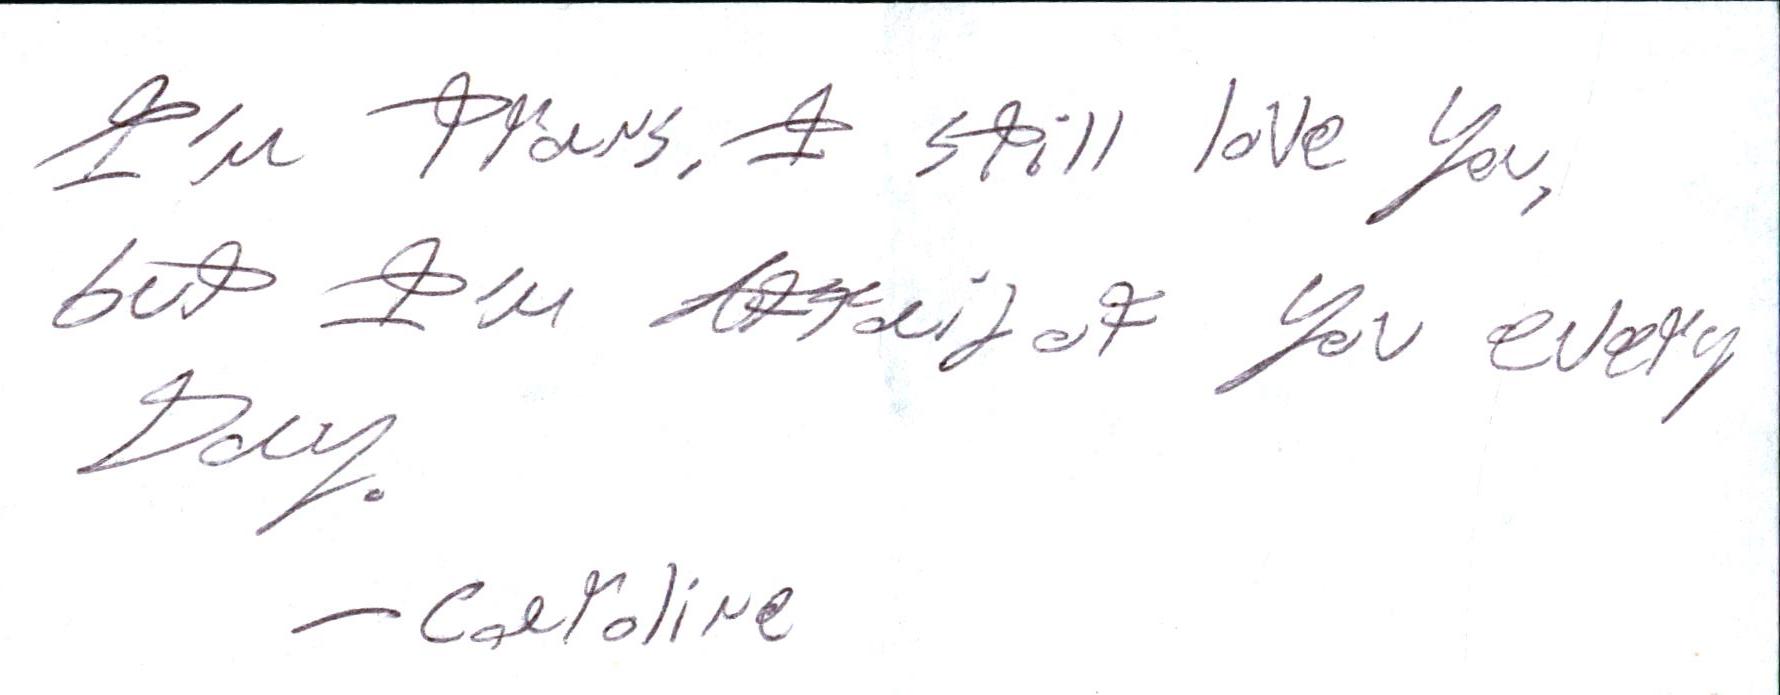 I'm trans, I still love you,
but I'm afraid of you every
Day.
— Caroline